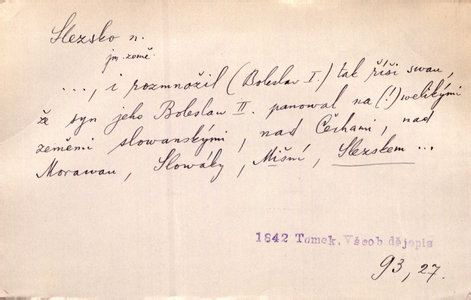 Slezsko n.
jm. země
..., i rozmnožil (Boleslav I.) tak říši swau,
že syn jeho Boleslaw II. panowal na (!) welikými
zeměmi slowanskými, nad Čechami, nad
Morawau, Slowáky, Míšní, Slezskem ...
1842 Tomek, Všeob dějepis
93, 27.